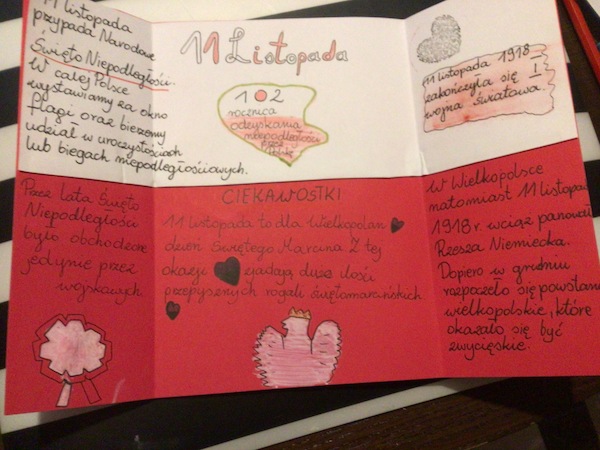 11 listopada
przypada Narodowe
Święto Niepodległości.
W całej Polsce
wystawiamy za okno
flagi oraz bierzemy
udział w uroczystościach
lub biegach niepodległościowych.
11 Listopada
102
rocznica
odzyskania
niepodległości
przez
Polskę
11 listopada 1918
zakończyła się I
wojna światowa.
Przez lata Święto
Niepodległości
było obchodzone
jedynie przez
wojskowych.
CIEKAWOSTKI
11 listopada to dla Wielkopolan
dzień Świętego Marcina. Z tej
okazji zjadają duże ilości
przepysznych rogali świętomarcińskich.
W Wielkopolsce
natomiast 11 listopada
1918 r. wciąż panowała
Rzesza Niemiecka.
Dopiero w grudniu
rozpoczęło się powstanie
wielkopolskie, które
okazało się być
zwycięskie.